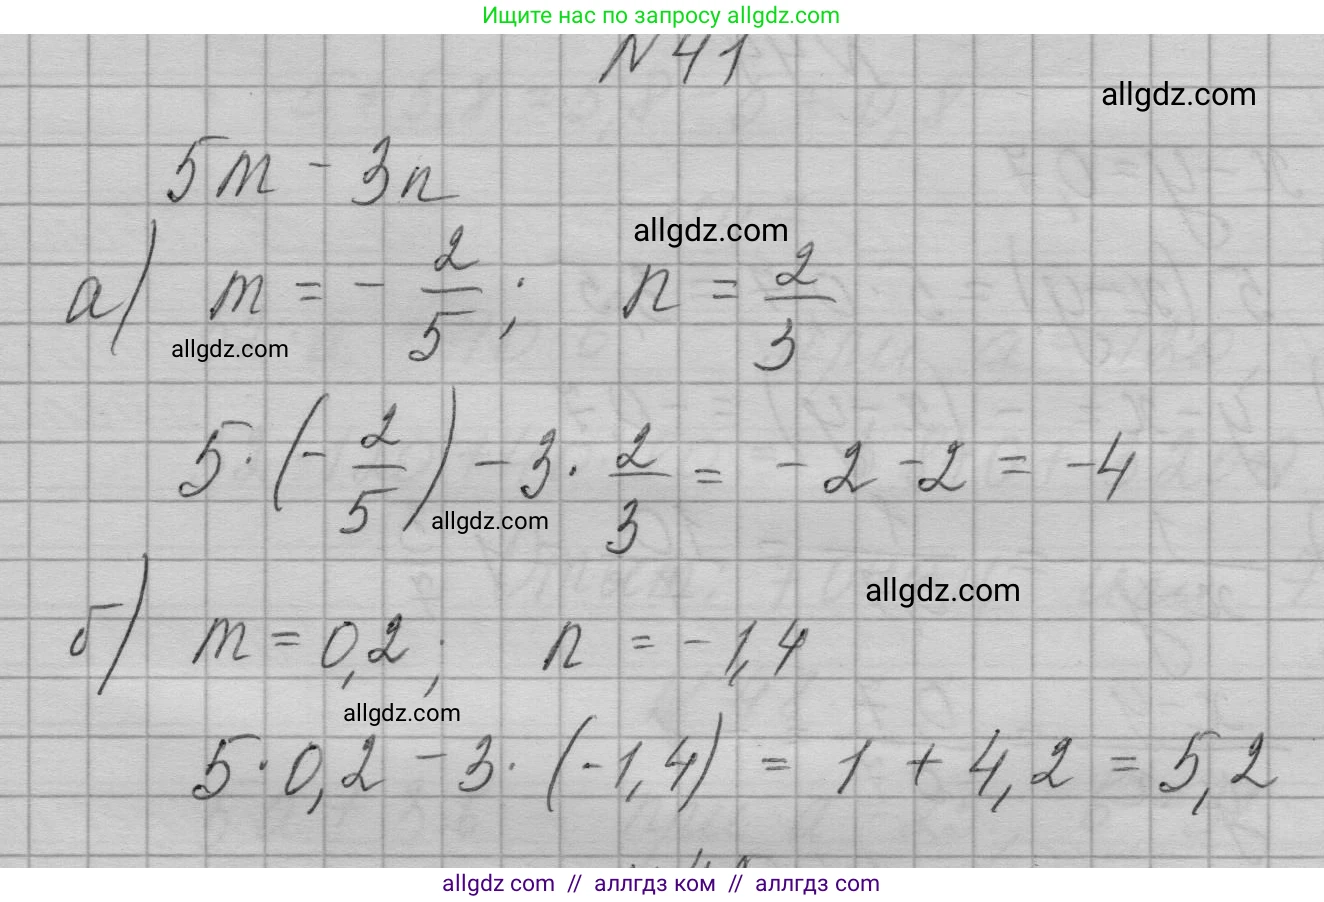 Ищите нас по запросу allgdz.com
N 41
allgdz.com
5m - 3n
allgdz.com
а) m = - 2/5 ; n = 2/3
allgdz.com
5 · (- 2/5) - 3 · 2/3 = -2 - 2 = -4
allgdz.com
allgdz.com
б) m = 0,2 ; n = -1,4
allgdz.com
5 · 0,2 - 3 · (-1,4) = 1 + 4,2 = 5,2
allgdz com // аллгдз ком // аллгдз com